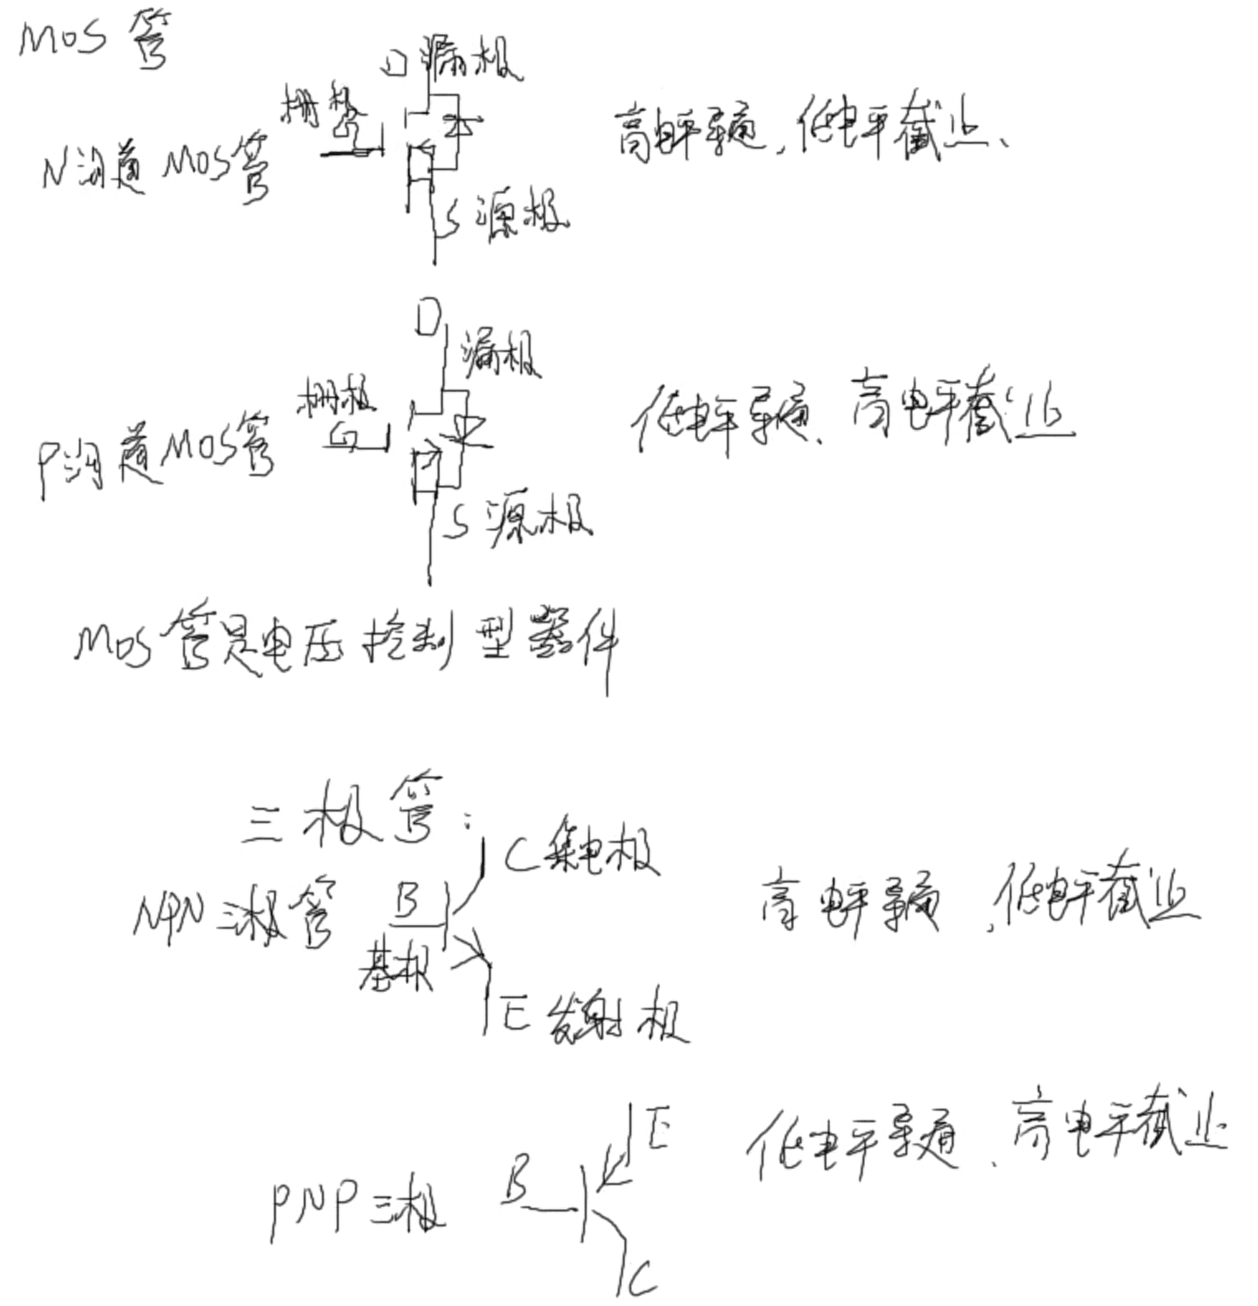 MOS管
D 漏极
栅极
G
N沟道MOS管
高电平导通,低电平截止、
S 源极
D
漏极
栅极
G
P沟道MOS管
低电平导通、高电平截止
S 源极
MOS管是电压控制型器件
三极管:
C 集电极
NPN三极管
B
基极
高电平导通,低电平截止
E 发射极
E
低电平导通、高电平截止
PNP三极
B
C